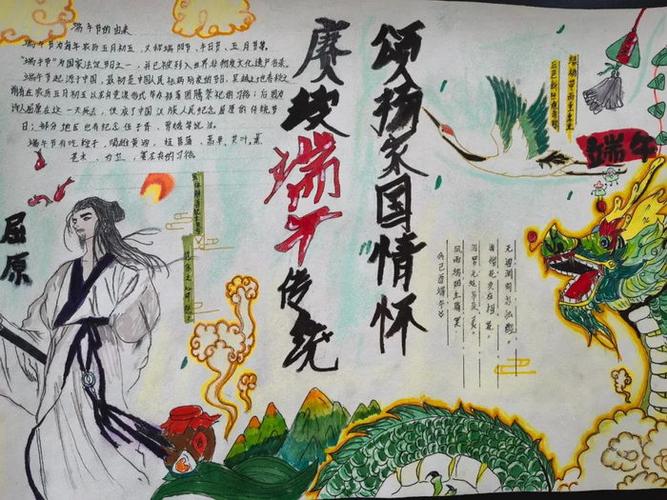 端午节的由来
端午节为每年农历五月初五,又称端阳节、午日节、五月节等。
"端午节"为国家法定节日之一,并已被列入世界非物质文化遗产名录。
端午节起源于中国,最初是中国人民祛病防疫的节日,吴越之地春秋之
前有在农历五月初五以龙舟竞渡形式举行部落图腾祭祀的习俗;后因为
诗人屈原在这一天死去,便成了中国汉族人民纪念屈原的传统节
日;部分地区也有纪念伍子胥、曹娥等说法。
端午节有吃粽子,喝雄黄酒,挂菖蒲、蒿草、艾叶,薰
苍术、白芷,赛龙舟的习俗。
屈原
颂扬家国情怀
端午传统
端午
绿杨带雨垂垂重
五色新丝缠角粽
《己酉端午》
风雨端阳生晦冥
汨罗无处吊英灵。
海榴花发应相笑,
无酒渊明亦独醒。